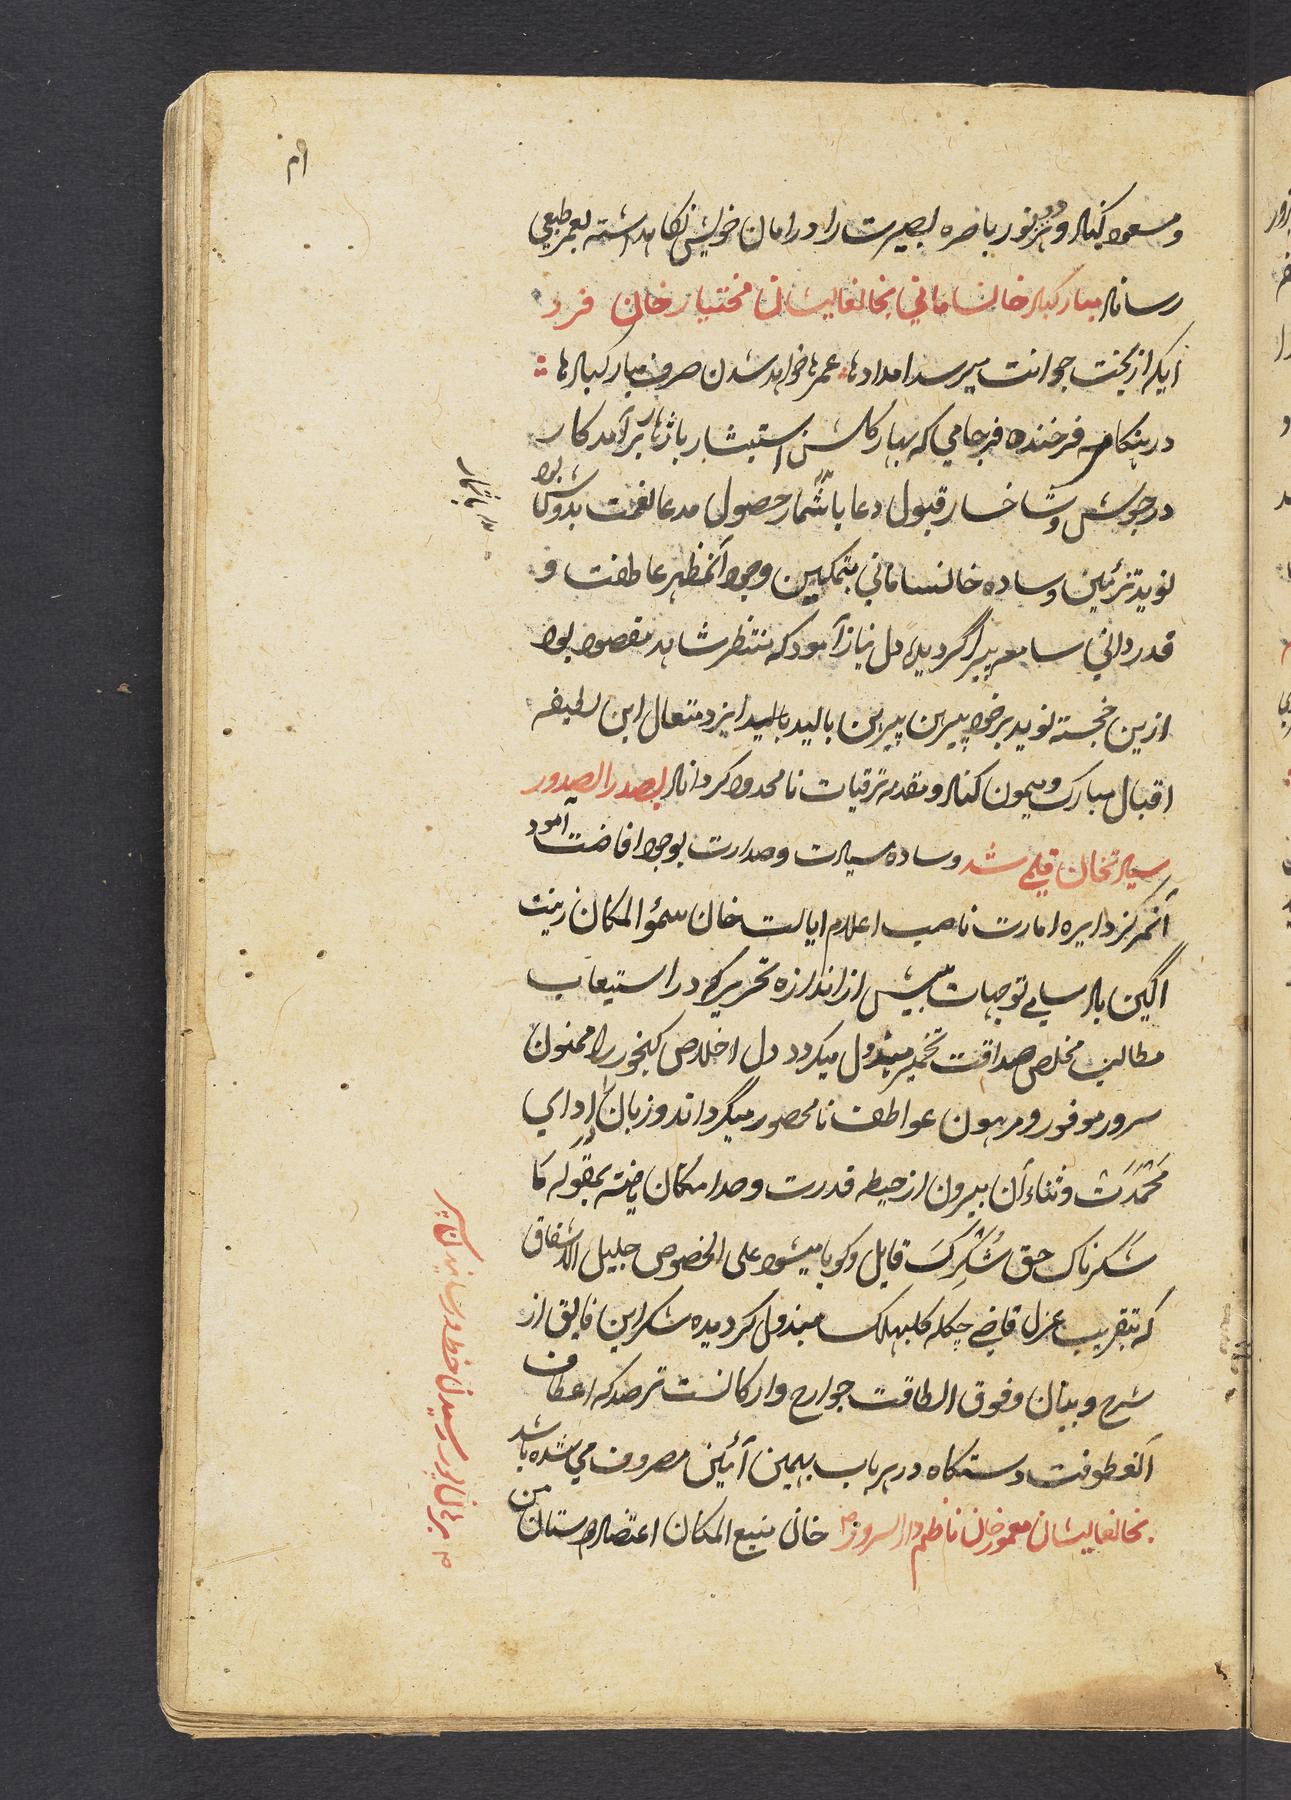 و مسعود کناد و هر دو نور باصره بصیرت را در امان خویش نگاهداشته بعمر طبیعی
رساناد مبارکباد خانسامانی بخانعالیشان مختیار خان فرد
ایکه از بخت جوانت میرسد امدادها عمرها خواهد شدن صرف مبارکبادها
در هنگام فرخنده فرجامی که بهار گلشن استبشار باژهار برآمد کار
در جوشش و شاخسار قبول دعا باثمار حصول مدعا نعمت بدوش بود
نوید تزئین وساده خانسامانی بتمکین وجود آنمظهر عاطفت و
قدردانی سامعه پیرا گردید دل نیاز آمود که منتظر شاهد مقصود بود
ازین خجسته نوید بر خود پیرهن پیرهن بالید ایزد متعال این لطیفه
اقبال مبارک و میمون کناد و مقدمه ترقیات نامحدود گرداناد بصدر الصدور
سیادتخان قلمی شد وساده سیادت و صدارت بوجود افاضت آمود
آنمرکز دایره امارت ناصب اعلام ایالت خان سمؤ المکان زینت
آگین باد سپاس توجهات بیش از اندازه تحریر که در استیعاب
مطالب مخلص صداقت تخمیر مبذول میگردد دل اخلاص گنجور را ممنون
سرور موفور و مرهون عواطف نامحصور میگرداند و زبان را در ادای
محمدت و ثناء آن بیرون از حیطه قدرت و حد امکان یافته بمقوله ما
شکرناک حق شکرک قایل و گویا میشود علی الخصوص جلیل الاشفاق
که بتقریب عزل قاضی چکله مبذول گردیده شکر این فایق از
شرح و بیان و فوق الطاقت جوارح و ارکانست ترصد که اعطاف
آنعطوفت دستگاه در هر باب بهمین آئین مصروف می شده باشد
بخانعالیشان معمور خان ناظم دار السرور خان منیع المکان اعتضاد دوستان من